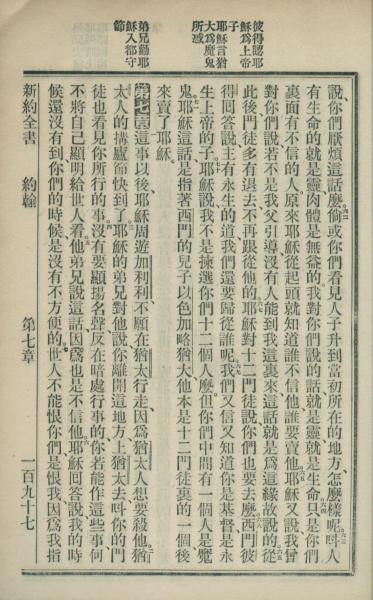 彼得認耶
穌爲上帝
子
耶穌言猶
大爲魔鬼
所惑
弟兄勸耶
穌入都守
節
說、你們厭煩這話麼、倘或你們看見人子升到當初所在的地方、怎麼樣呢、叫人
有生命的就是靈、肉體是無益的、我對你們說的話就是靈就是生命、只是你們
裏面有不信的人、原來耶穌從起頭就知道誰不信他、誰要賣他、耶穌又說、我曾
對你們說、若不是我父引導沒有人能到我這裏來、這話就是爲這緣故說的、從
此後門徒多有退去不再跟從他的、耶穌對十二門徒說、你們也要去麼、西門彼
得回答說、主有永生的道、我們還要歸從誰呢、我們又信又知道你是基督是永
生上帝的子、耶穌說、我不是揀選你們十二個人麼、但你們中間有一個人是魔
鬼、耶穌這話是指著西門的兒子以色加略猶大、他本是十二門徒裏的一個、後
來賣了耶穌、
第七章 這事以後、耶穌周遊加利利、不願在猶太行走、因爲猶太人想要殺他、猶
太人的搆廬節快到了、耶穌的弟兄對他說、你離開這地方上猶太去、叫你的門
徒也看見你所行的事、沒有要顯揚名聲反在暗處行事的、你若能作這些事、何
不將自己顯明給世人看、他弟兄說這話、因爲也是不信他、耶穌回答說、我的時
候還沒有到、你們的時候是沒有不方便的、世人不能恨你們、是恨我、因爲我指
新約全書 約翰 第七章 一百九十七